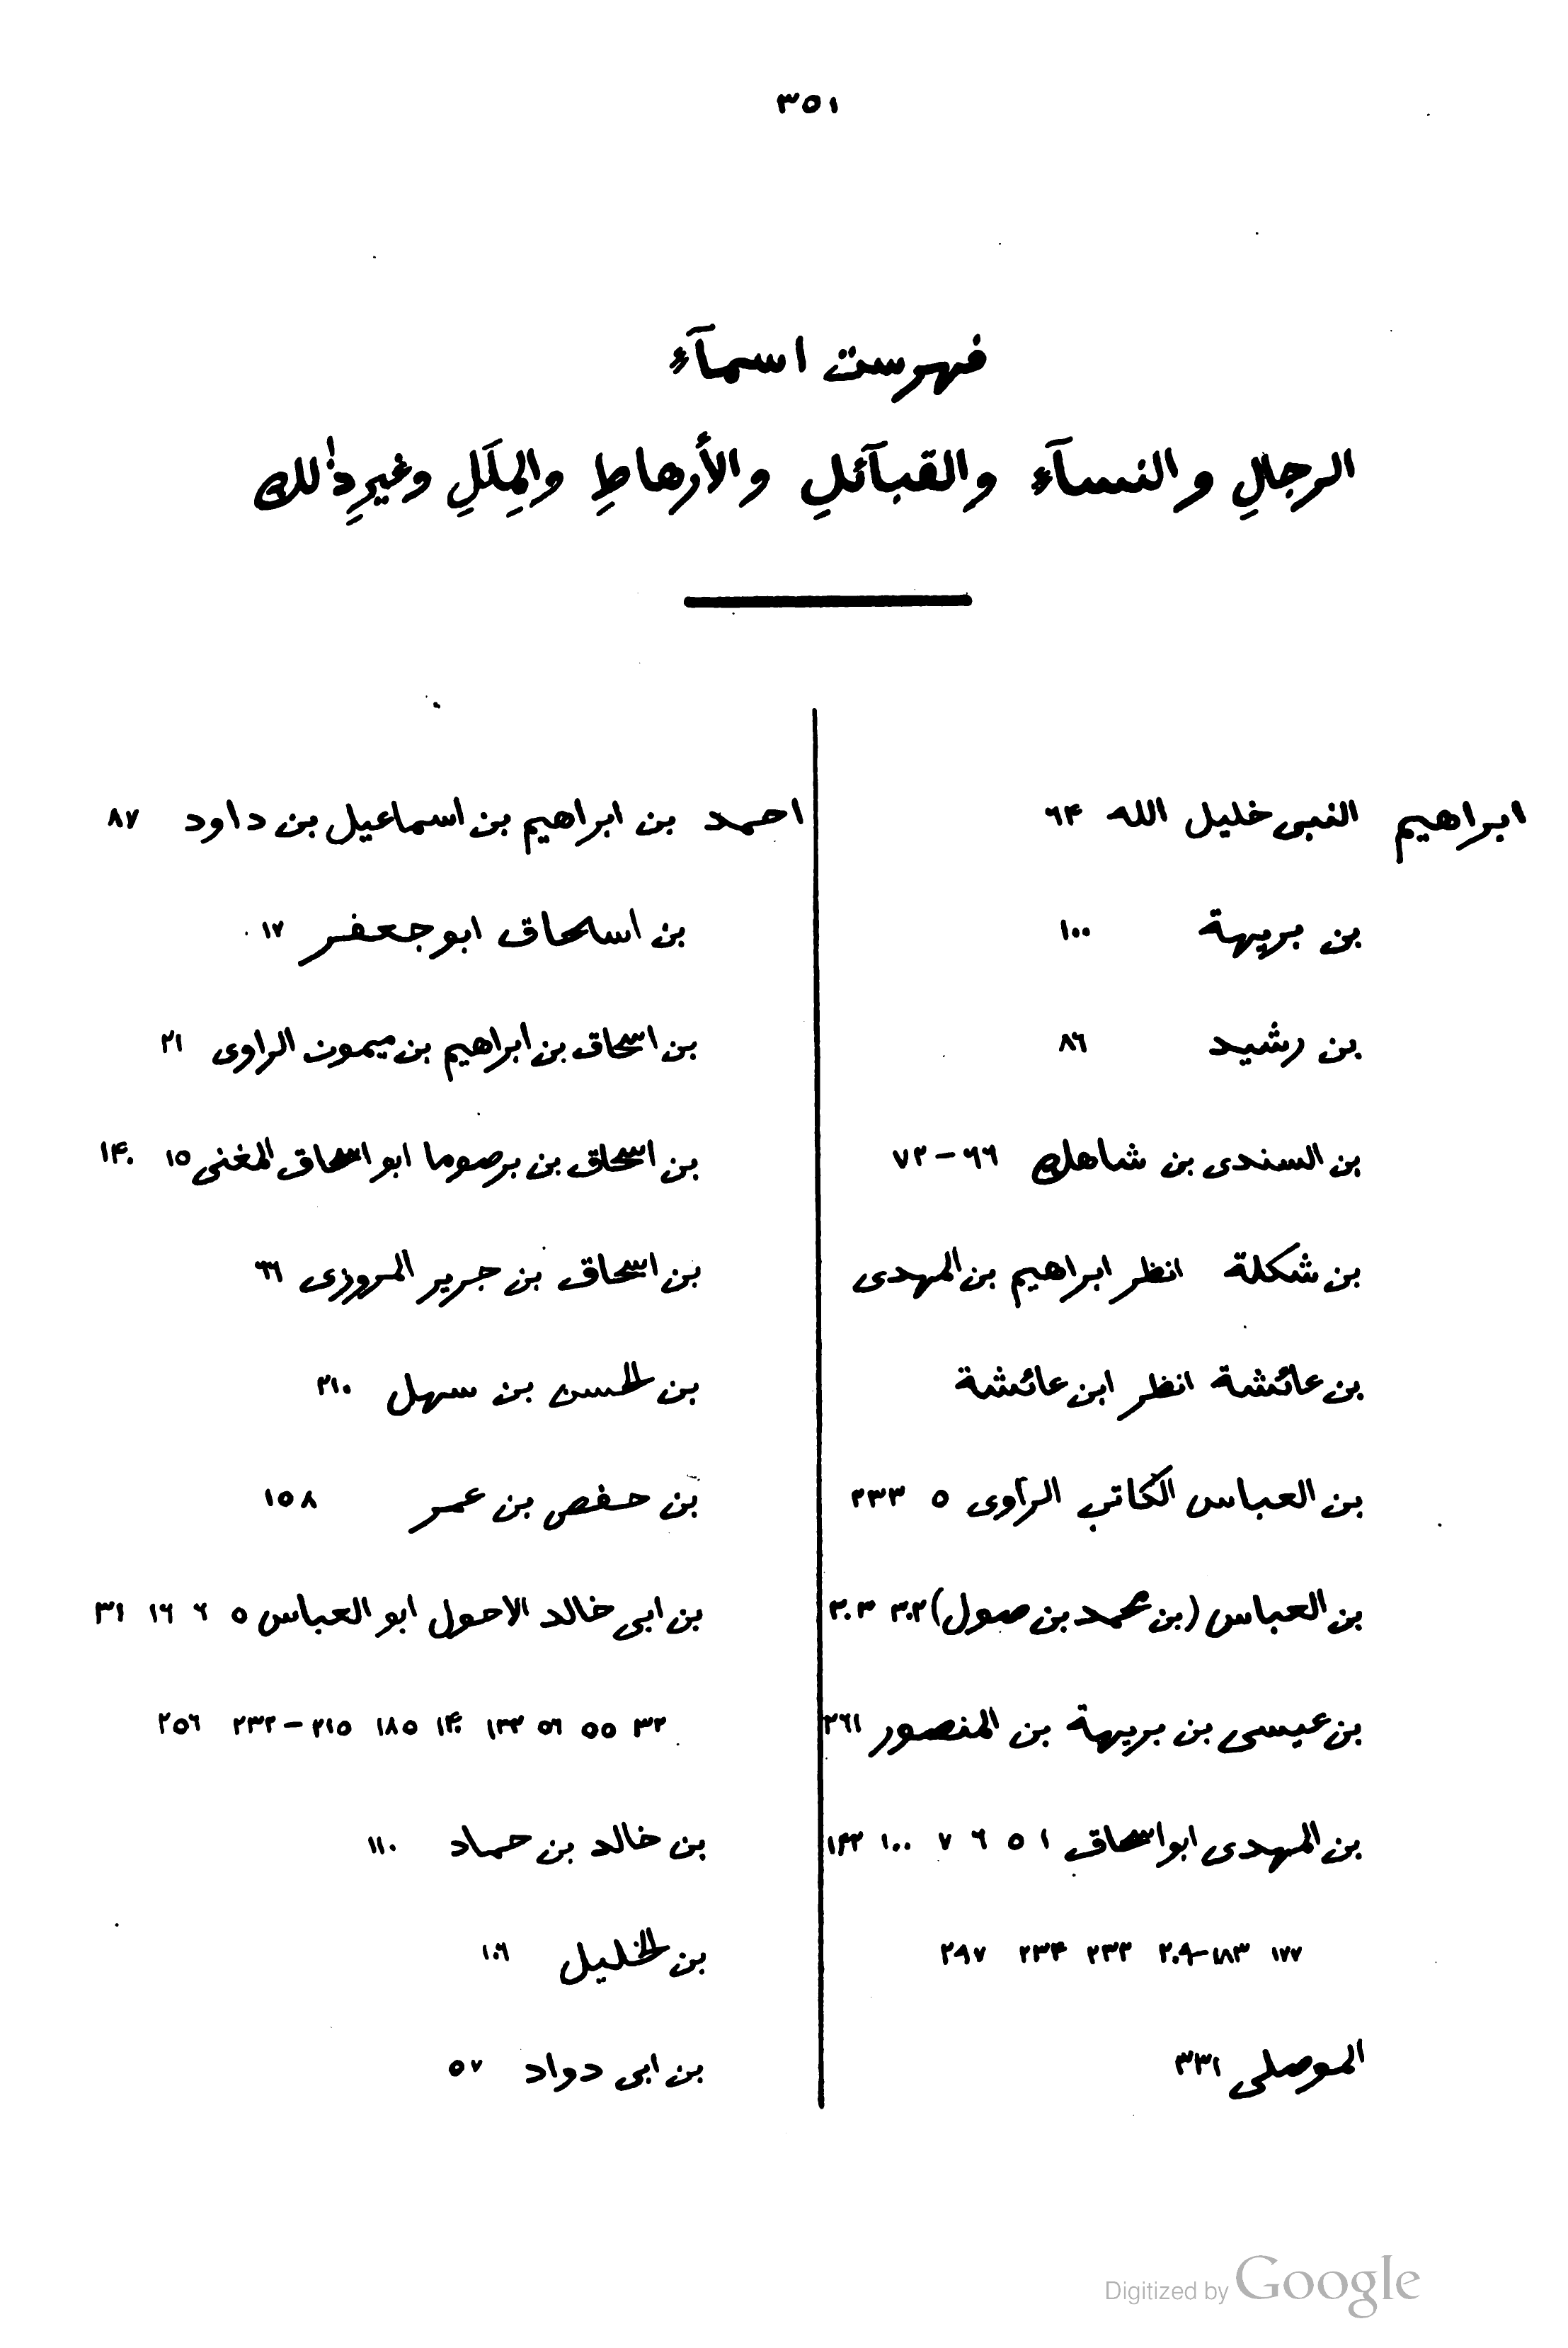 ٣٥١
فهرست اسمآءِ
الرجالِ والنسآءِ والقبآئلِ والأرهاطِ والمِلَلِ وغيرِ ذٰلك
ابراهيم النبى خليل الله ٦۴
بن بريهة ١٠٠
بن رشيد ٨٦
بن السندى بن شاهك ٦٦–٧٢
بن شكلة انظر ابراهيم بن المهدى
بن عائشة انظر ابن عائشة
بن العباس الكاتب الراوى ٥ ٢٣٣
بن العباس (بن محمد بن صول) ٣٠٢ ٣٠٣
بن عيسى بن بريهة بن المنصور ٢٦١
بن المهدى ابو اسحاق ١ ٥ ٦ ٧ ١٠٠ ١۴٢
١٧٧ ١٨٣–٢٠٩ ٢٣٣ ٢٣۴ ٢٩٧
الموصلى ٣٣١
احمد بن ابراهيم بن اسماعيل بن داود ٨٧
بن اسحاق ابو جعفر ١٧
بن اسحاق بن ابراهيم بن ميمون الراوى ٢١
بن اسحاق بن برصوما ابو اسحاق المغنى ١٥ ١۴٠
بن اسحاق بن جرير المروزى ٦٦
بن الحسن بن سهل ٢١٠
بن حفص بن عمر ١٥٨
بن ابى خالد الاحول ابو العباس ٥ ٦ ١٦ ٣١
٣٢ ٥٥ ٥٦ ١٣٣ ١۴٠ ١٨٥ ٢١٥–٢٣٢ ٢٥٦
بن خالد بن حماد ١١٠
بن الخليل ١٠٦
بن ابى دواد ٥٧
Digitized by Google